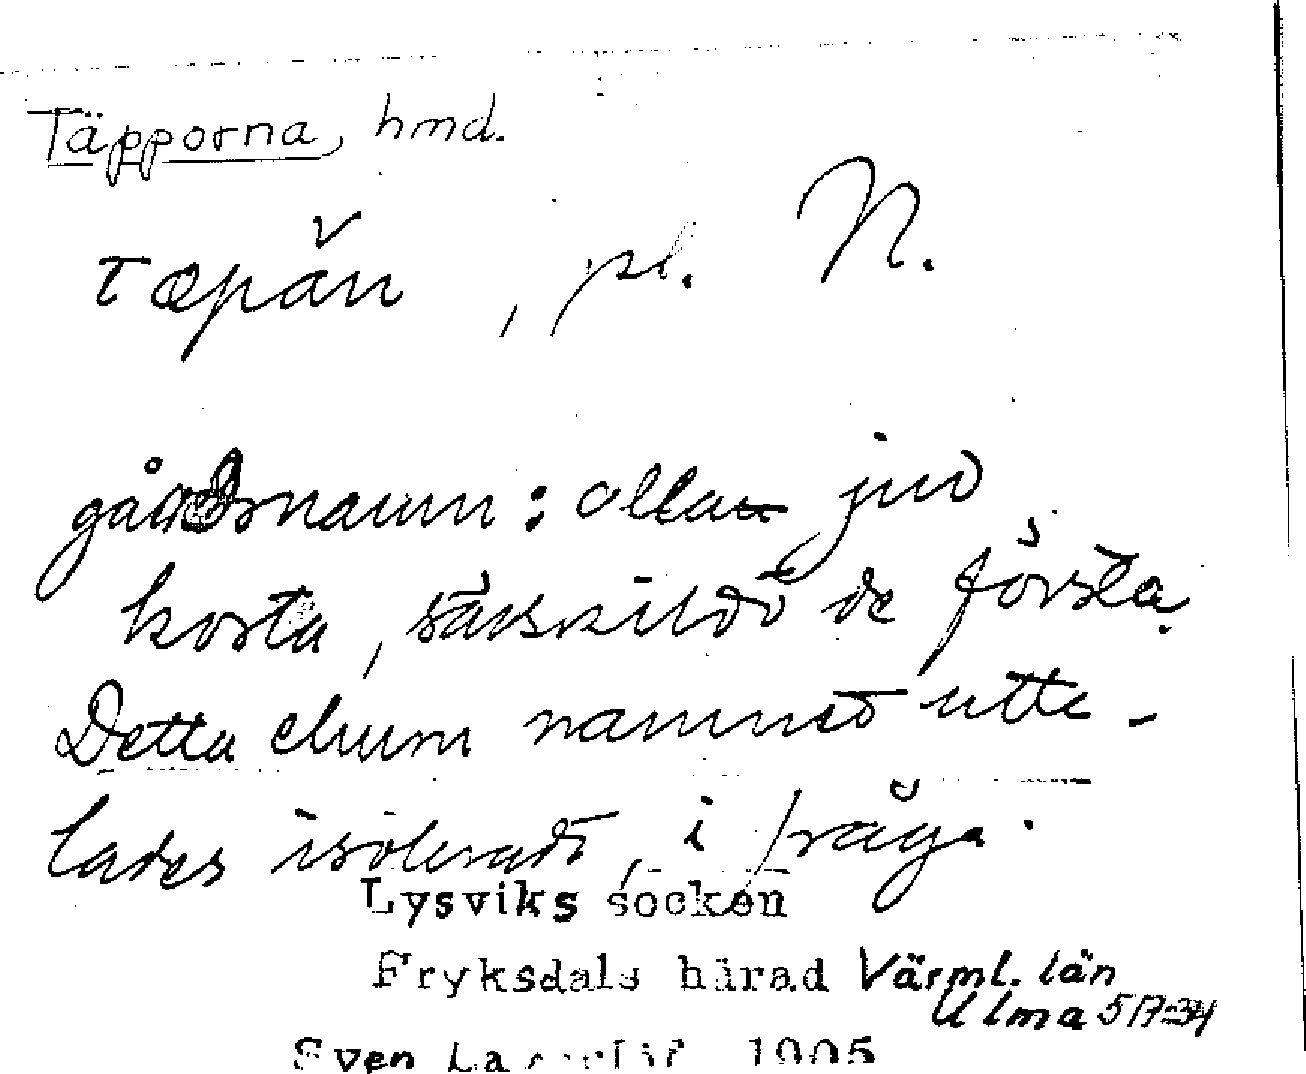 Täpporna, hmd.
tæpăn, pl. N.
gårdsnamn: alla ju
korta, särskildt de första.
Detta ehuru namnet utta-
lades isoleradt, i fråga.
Lysviks socken
Fryksdals härad Värml. län
Ulma 517:34
Sven 1905